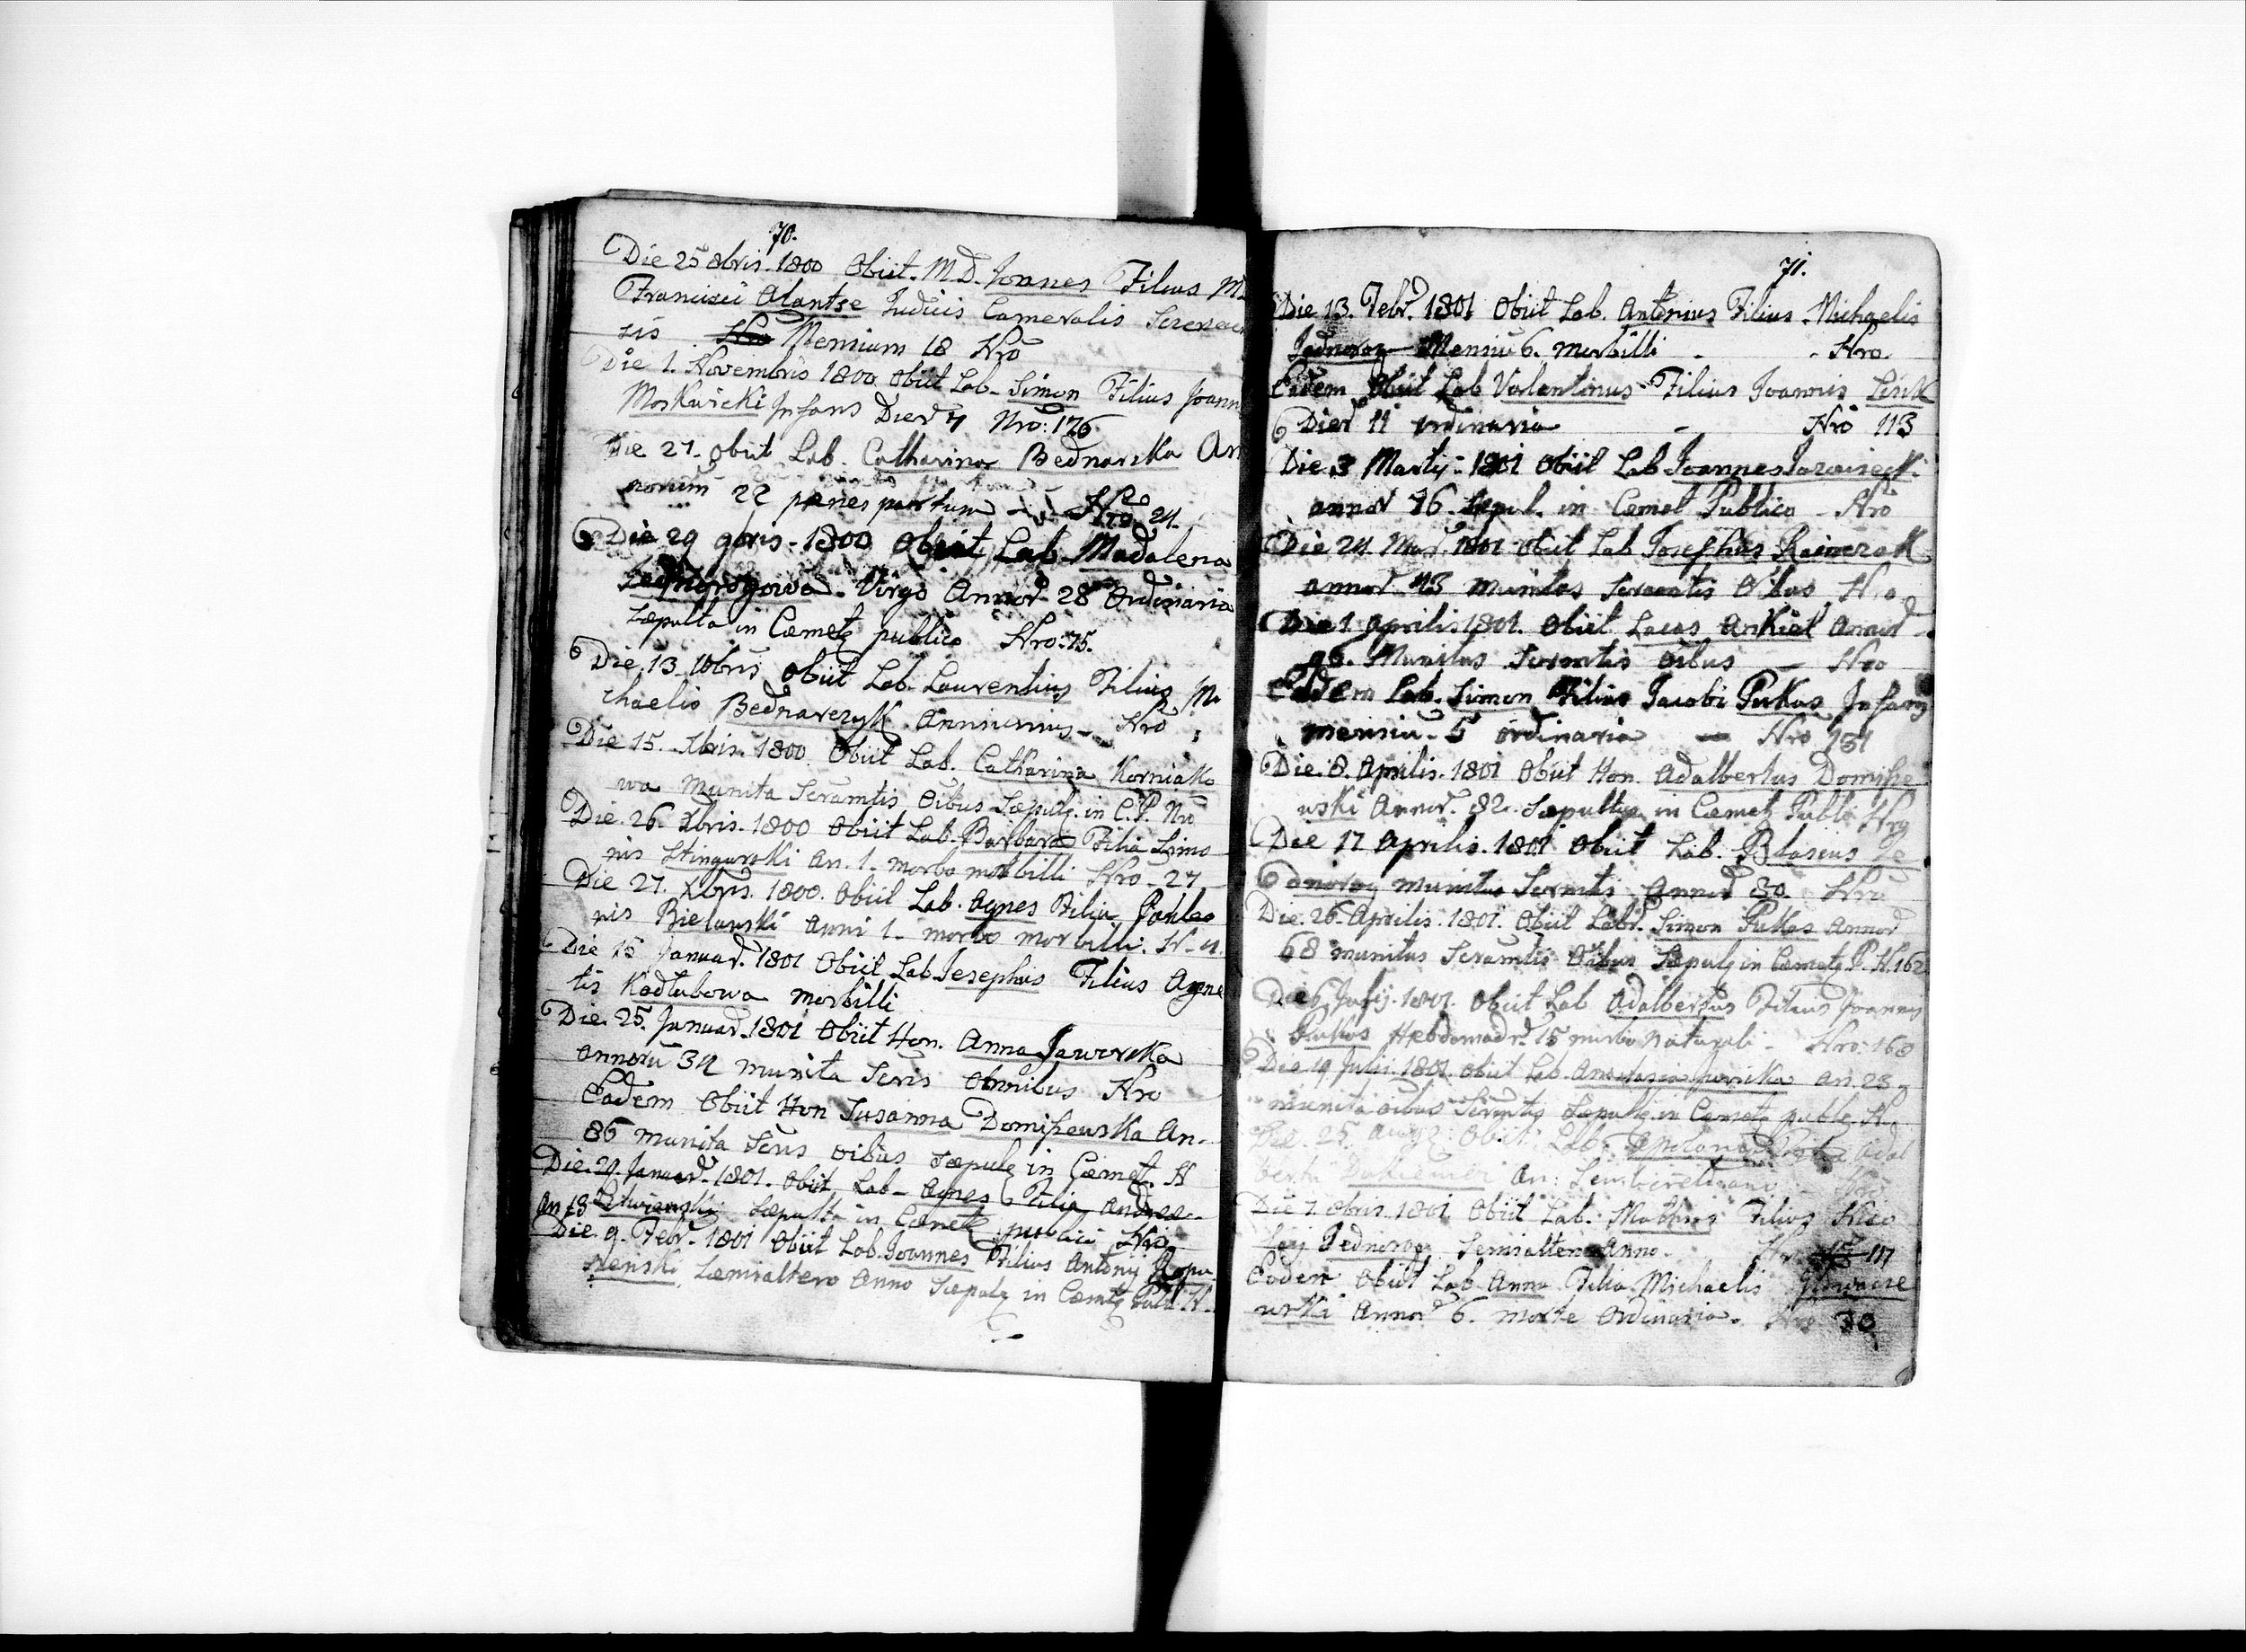 70.
Die 25 8bris. 1800 Obiit. M.D. Joannes Filius M.
Francisci Alantse Judicis Cameralis
sis Mensium 18 Nro
Die 1. Novembris 1800 Obiit Lab. Simon Filius Joann
Moskwicki Infans Dier 7 Nro: 176.
Die 27. Obiit Lab. Catharina Bednarska An
norum 22 penes partum Nro 24.
Die 29 9bris. 1800 Obiit Lab. Madalena
Virgo Annor. 28 Ordinaria
Sæpulta in Cæmetz publico Nro: 75.
Die 13 Xbris Obiit Lab. Laurentius Filius Mi
chaelis Bednarczyk. Nro
Die 15. Xbris. 1800 Obiit Lab. Catharina Korniako
wa Munita Scramtis Oibus Sæpulz. in C.P. Nro
Die. 26. Xbris. 1800 Obiit Lab. Barbara Filia Simo
nis Stingurski An. 1. morbo morbilli Nro - 27
Die 27. Xbris. 1800. Obiit Lab. Agnes Filia
nis Bielanski Anni 1. morbo morbilli. N. 4.
Die 15 Januar. 1801 Obiit Lab. Josephus Filius Agne
tis Kadlubowa morbilli
Die. 25. Januar. 1801 Obiit Hon. Anna Jaworska
annoru 34 munita Scris Omnibus Nro
Eadem Obiit Hon Susanna Domiszewska An.
86 munita Scris oibus Sæpulz in Cæmet. N
Die. 29. Januar. 1801. Obiit Lab. Agnes Filia Andreæ
An 18 Sæpulta in Cæmetz publico Nro
Die. 9. Febr. 1801 Obiit Lab. Joannes Filius Antonij
Sæmialtero Anno Sæpulz in Cæmtz Publ. N.
71.
Die 13. Febr. 1801 Obiit Lab. Antonius Filius Michaelis
Jednorog Mensiu 6. morbilli - - Nro
Eadem Obiit Lab Valentinus Filius Joannis
Dier 11 ordinaria - Nro 113
Die 3 Martij. 1801 Obiit Lab Joannes
annor 76. Sepul. in Cæmet Publico - Nro
Die 24 Mar. 1801 Obiit Lab Josephus
annor 43 munitus Scramtis Oibus Nro
Die 1 Aprilis 1801. Obiit Lucas Ankiel Annor
96. Munitus Scramtis Oibus - Nro
Eadem Lab. Simon Filius Jacobi Pukas Infans
mensiu. 5 ordinaria - Nro 131
Die. 8. Aprilis. 1801 Obiit Hon. Adalbertus Domisze
wski Annor. 82. Sæpultus in Cæmetz Publi Nro
Die 17 Aprilis. 1801 Obiit Lab. Blasius Je
dnorog munitus Scramtis Annor 80. Nro
Die. 26. Aprilis. 1801. Obiit Labr. Simon Pukas Annor
68 munitus Scramtis Oibus Sæpulz in Cæmetz P. N. 162
Die 6 Julij. 1801. Obiit Lab Adalbertus Filius Joannis
Pukas Hebdomadr. 15 morbo naturali - Nro: 168
Die 19 Julii. 1801. Obiit Lab. Anastasia An. 23
munita oibus Scramtis Sæpulz. in Cæmetz publ. N.
Die. 25. Obiit Lab. Apolonia Filia Adal
berti An:
Die 7. 8bris. 1801 Obiit Lab. Mathias Filius Nico
laij Jednorog Semialtero Anno. Nro 117
Eodem Obiit Lab Anna Filia Michaelis
wski Annor 6. morte Ordinaria. Nro 70